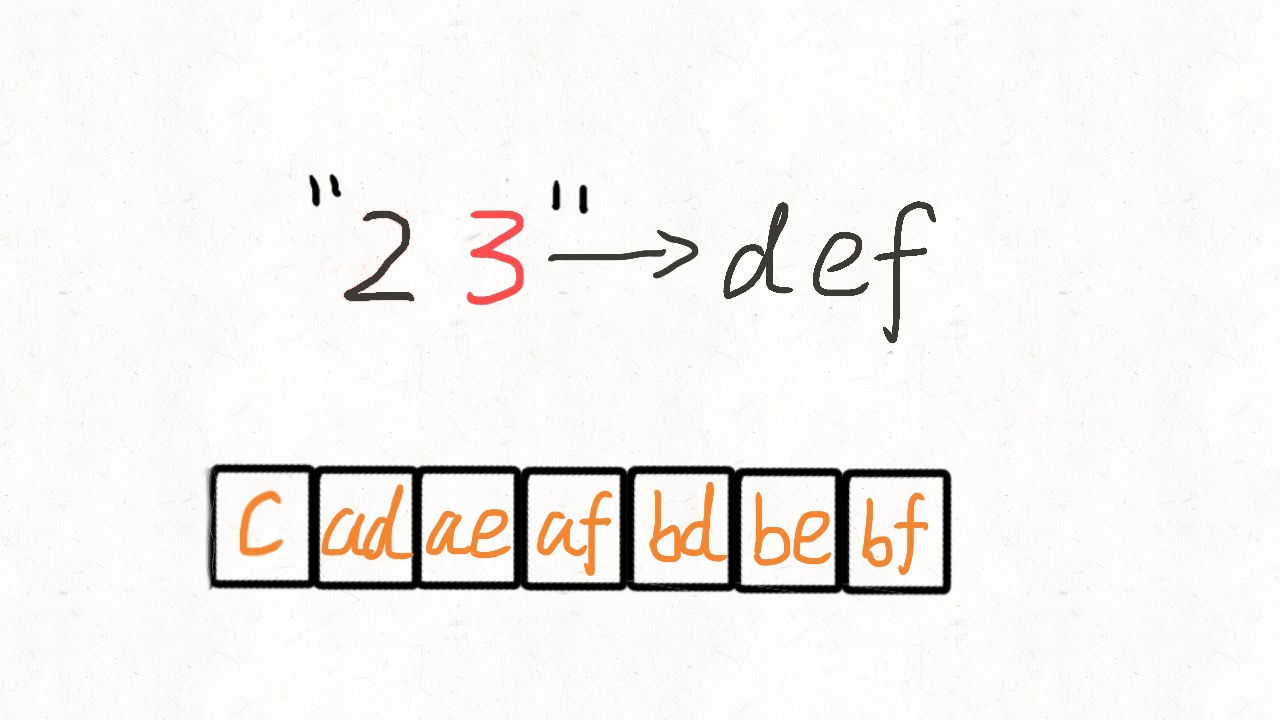 "23"→def
c ad ae af bd be bf